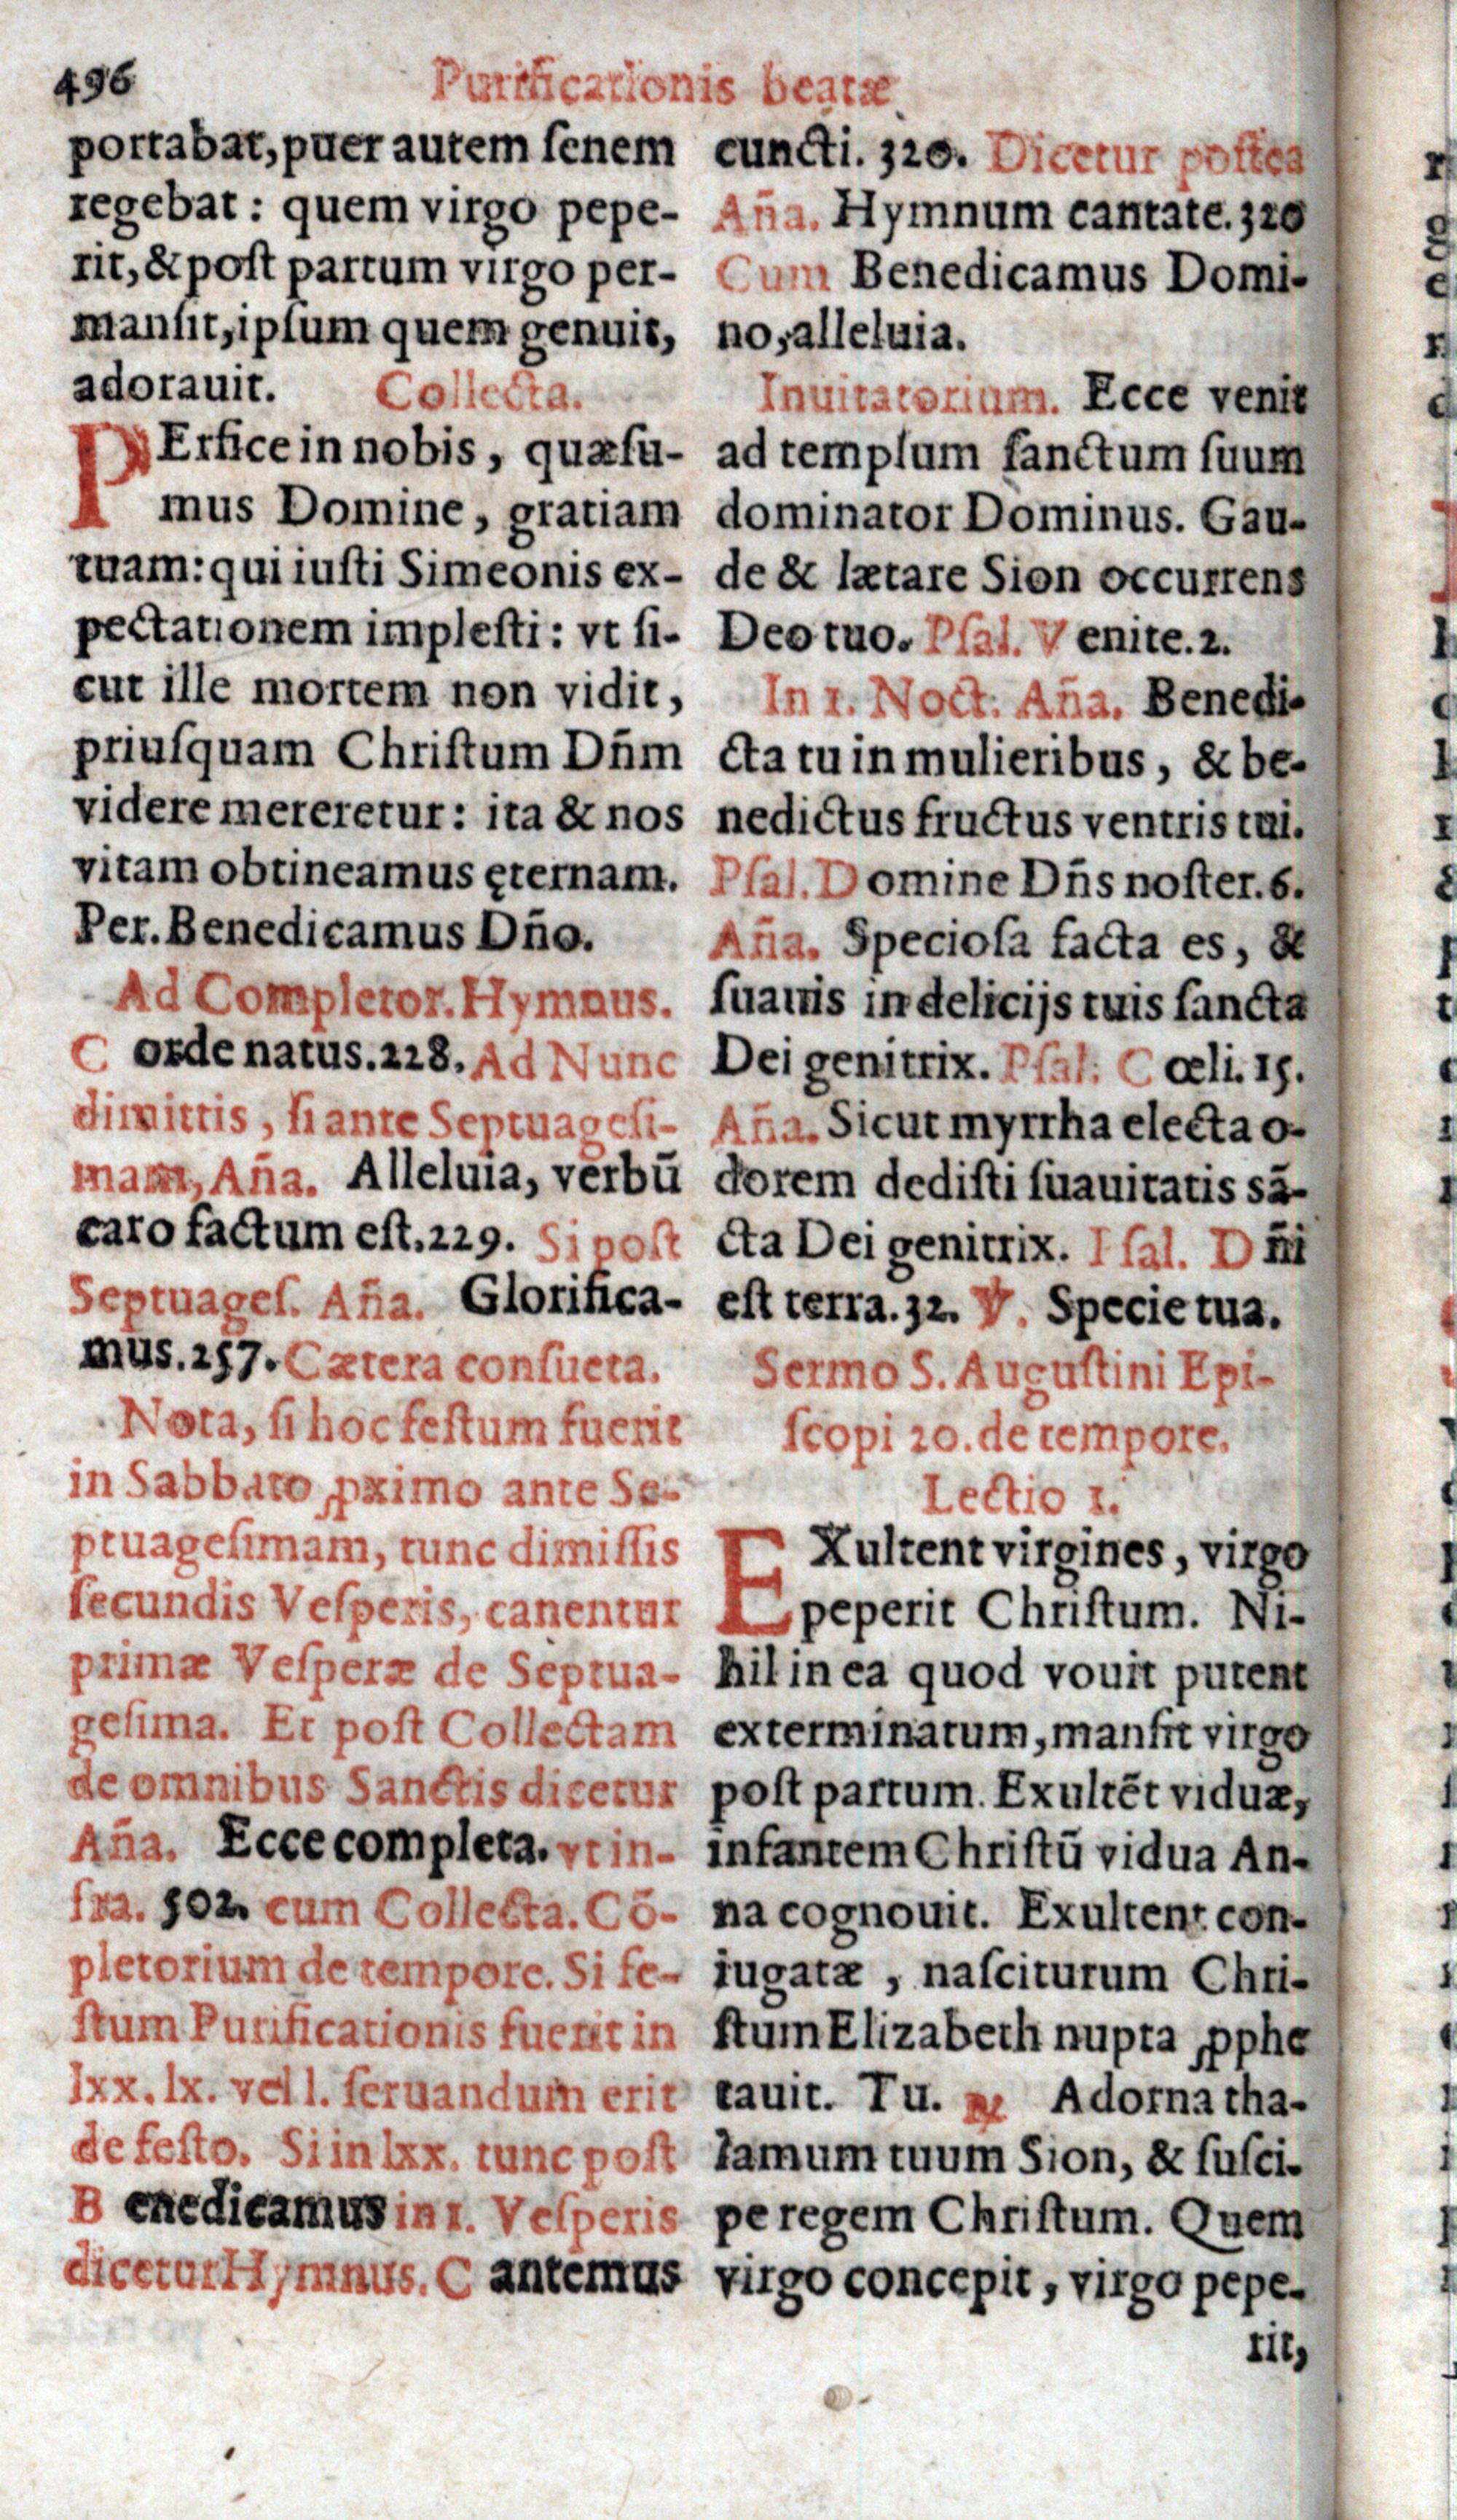 496
Purificationis beatæ
portabat, puer autem ſenem
regebat : quem virgo pepe-
rit, & poſt partum virgo per-
manſit, ipſum quem genuit,
adorauit. Collecta.
PErfice in nobis, quæſu-
mus Domine, gratiam
tuam: qui iuſti Simeonis ex-
pectationem impleſti : vt ſi-
cut ille mortem non vidit,
priuſquam Chriſtum Dñm
videre mereretur : ita & nos
vitam obtineamus ęternam.
Per. Benedicamus Dño.
Ad Completor. Hymnus.
C orde natus. 228. Ad Nunc
dimittis, ſi ante Septuageſi-
mam, Aña. Alleluia, verbū
caro factum eſt. 229. Si poſt
Septuageſ. Aña. Glorifica-
mus. 257. Cætera conſueta.
Nota, ſi hoc feſtum fuerit
in Sabbato ꝓximo ante Se-
ptuageſimam, tunc dimiſſis
ſecundis Veſperis, canentur
primæ Veſperæ de Septua-
geſima. Et poſt Collectam
de omnibus Sanctis dicetur
Aña. Ecce completa. vt in-
fra. 502. cum Collecta. Cō-
pletorium de tempore. Si fe-
ſtum Purificationis fuerit in
lxx. lx. vel l. ſeruandum erit
de feſto. Si in lxx. tunc poſt
B enedicamus in 1. Veſperis
dicetur Hymnus. C antemus
cuncti. 320. Dicetur poſtea
Aña. Hymnum cantate. 320
Cum Benedicamus Domi-
no, alleluia.
Inuitatorium. Ecce venit
ad templum ſanctum ſuum
dominator Dominus. Gau-
de & lætare Sion occurrens
Deo tuo. Pſal. V enite. 2.
In 1. Noct. Aña. Benedi-
cta tu in mulieribus, & be-
nedictus fructus ventris tui.
Pſal. D omine Dñs noſter. 6.
Aña. Specioſa facta es, &
ſuauis in delicijs tuis ſancta
Dei genitrix. Pſal. C œli. 15.
Aña. Sicut myrrha electa o-
dorem dediſti ſuauitatis sā-
cta Dei genitrix. Pſal. D ñi
eſt terra. 32. ℣. Specie tua.
Sermo S. Auguſtini Epi-
ſcopi 20. de tempore.
Lectio 1.
EXultent virgines, virgo
peperit Chriſtum. Ni-
hil in ea quod vouit putent
exterminatum, manſit virgo
poſt partum. Exultēt viduæ,
infantem Chriſtū vidua An-
na cognouit. Exultent con-
iugatæ, naſciturum Chri-
ſtum Elizabeth nupta ꝓphe
tauit. Tu. ℟ Adorna tha-
lamum tuum Sion, & ſuſci-
pe regem Chriſtum. Quem
virgo concepit, virgo pepe-
rit,